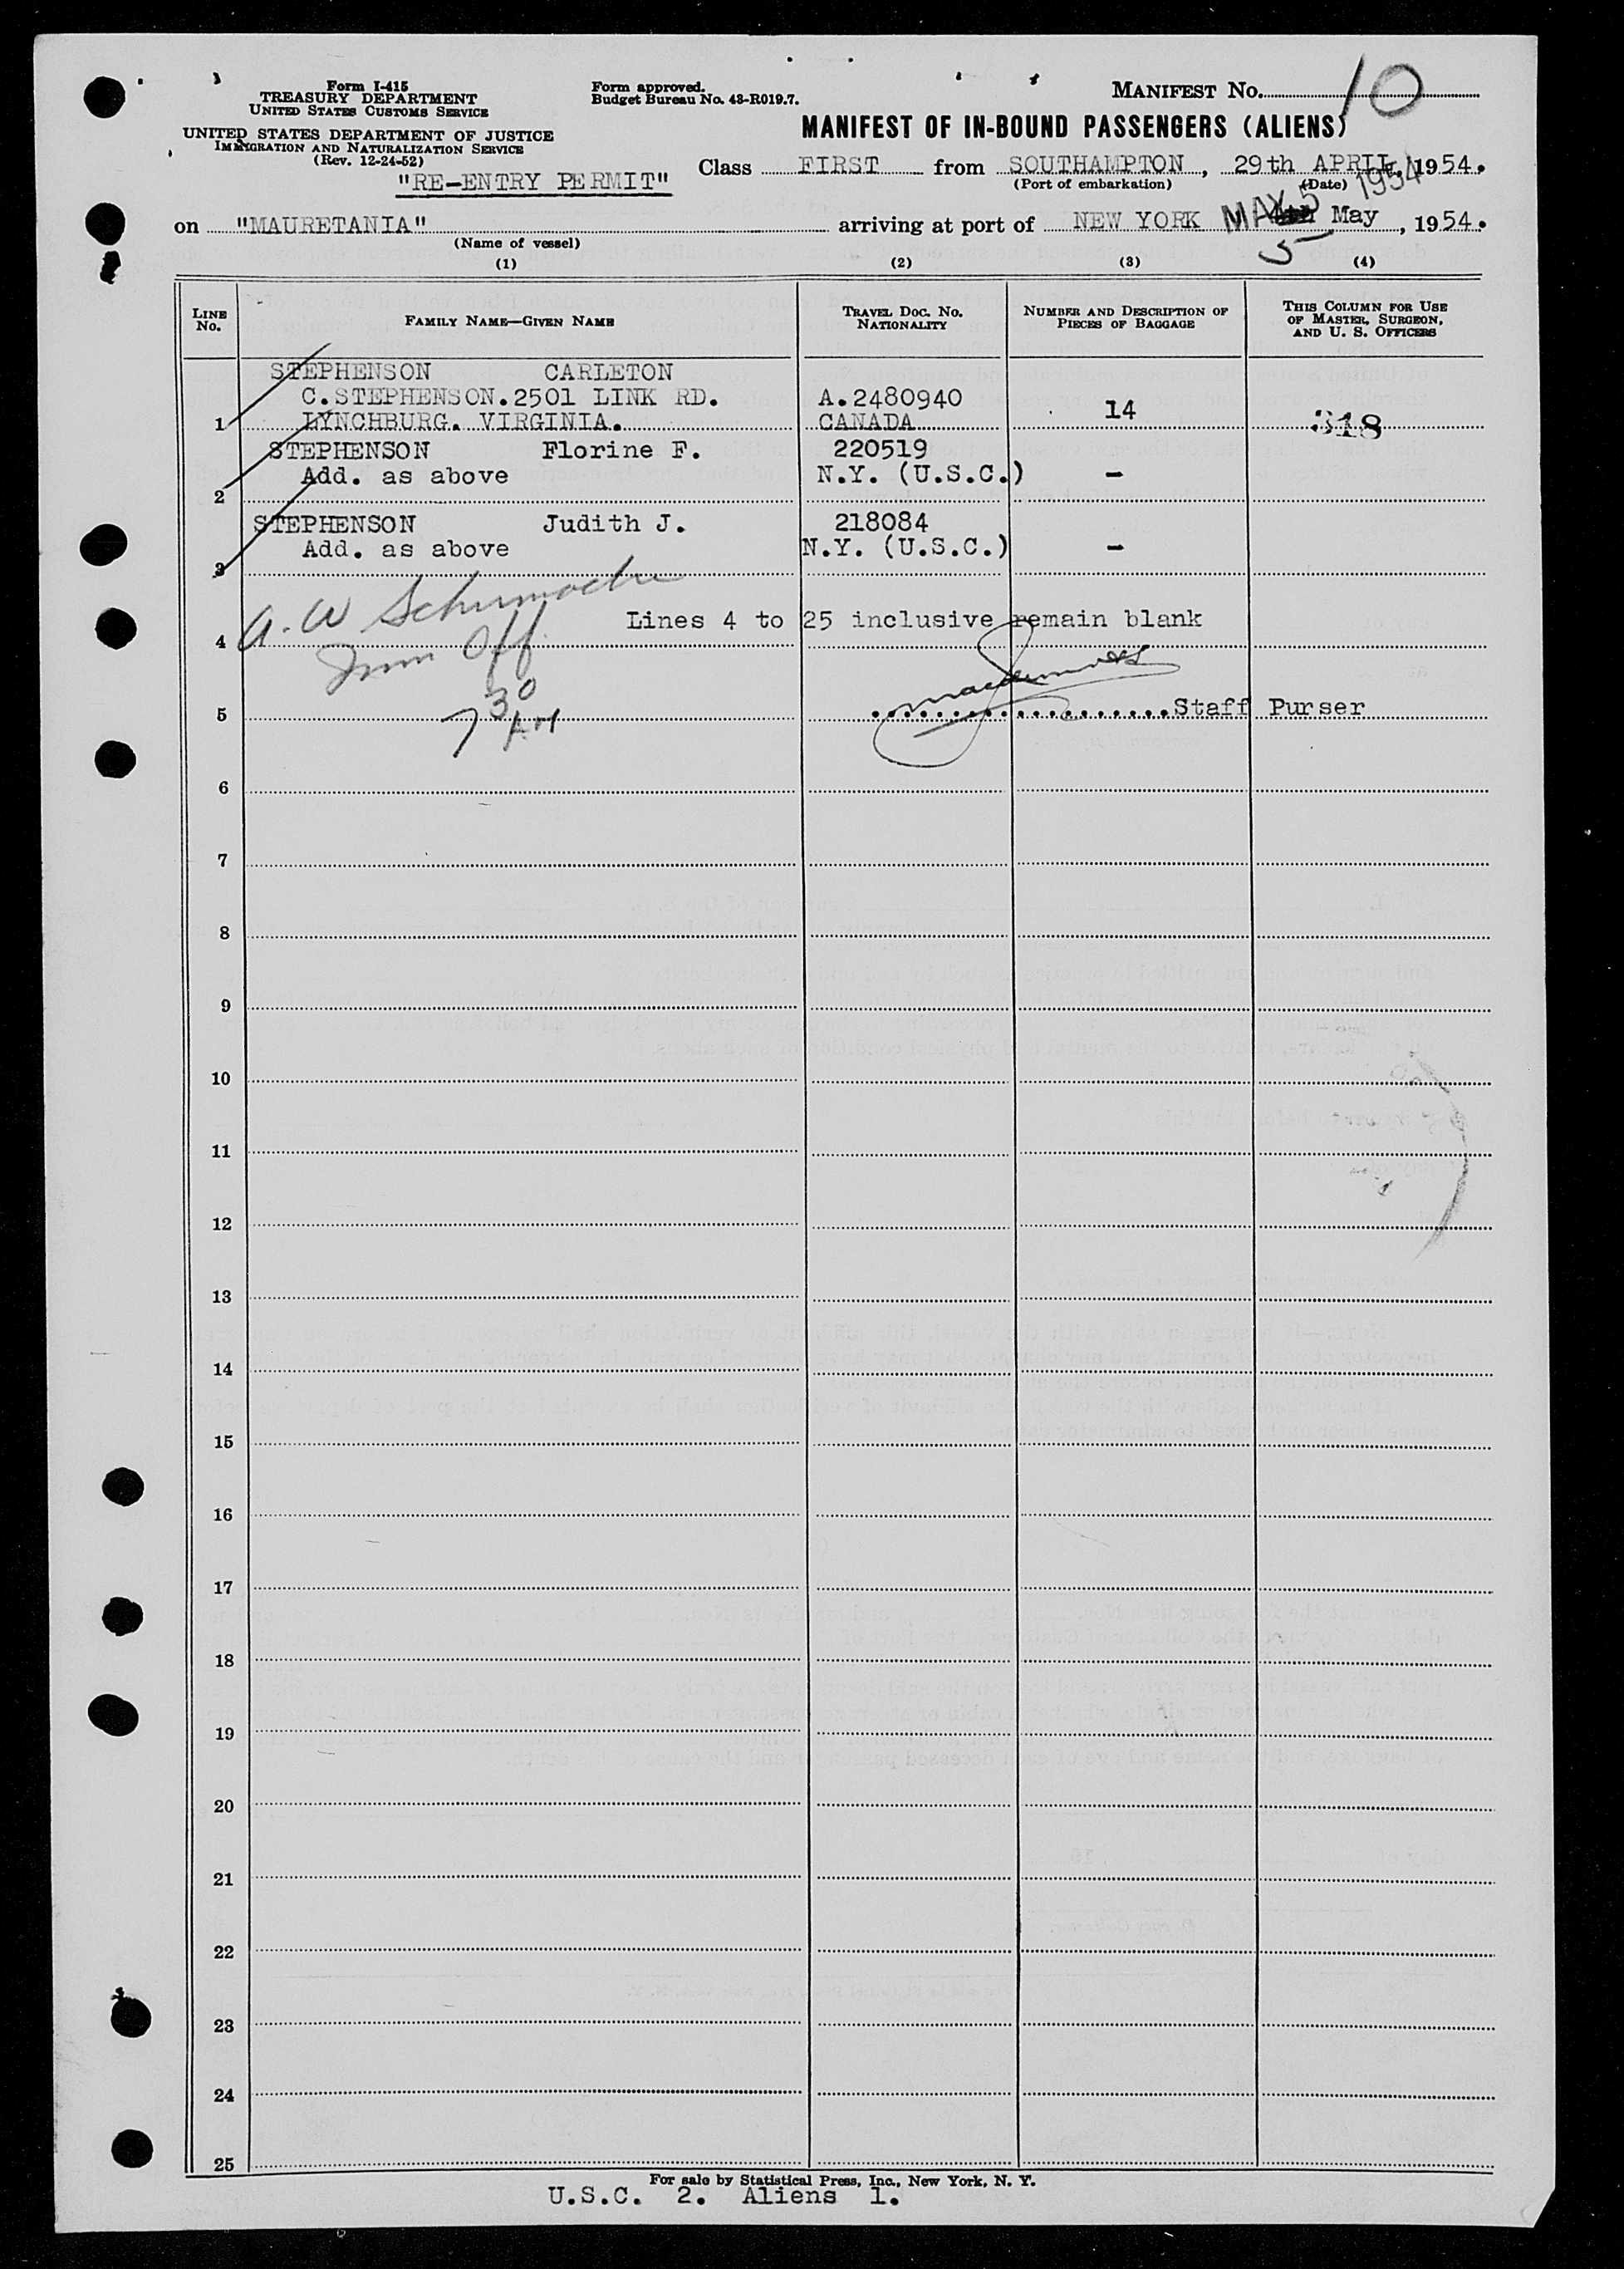 Form I-415
TREASURY DEPARTMENT
UNITED STATES CUSTOMS SERVICE
UNITED STATES DEPARTMENT OF JUSTICE
IMMIGRATION AND NATURALIZATION SERVICE
(Rev. 12-24-52)
"RE-ENTRY PERMIT"
Form approved.
Budget Bureau No. 43-R019.7.
MANIFEST NO. 10
MANIFEST OF IN-BOUND PASSENGERS (ALIENS)
Class FIRST from SOUTHAMPTON, 29th APRIL, 1954.
(Port of embarkation) (Date)
MAY 5 1954
on "MAURETANIA" arriving at port of NEW YORK May, 1954.
(Name of vessel) 5
(1) (2) (3) (4)
LINE NO. FAMILY NAME—GIVEN NAME TRAVEL DOC. NO. NATIONALITY NUMBER AND DESCRIPTION OF PIECES OF BAGGAGE THIS COLUMN FOR USE OF MASTER, SURGEON, AND U. S. OFFICERS
STEPHENSON CARLETON
C.STEPHENSON.2501 LINK RD. A.2480940
1 LYNCHBURG. VIRGINIA. CANADA 14 318
STEPHENSON Florine F. 220519
Add. as above N.Y. (U.S.C.) -
2
STEPHENSON Judith J. 218084
Add. as above N.Y. (U.S.C.) -
3
A. W Schumacher
Lines 4 to 25 inclusive remain blank
4 Imm Off.
5 Staff Purser
7 30 AM
6
7
8
9
10
11
12
13
14
15
16
17
18
19
20
21
22
23
24
25
For sale by Statistical Press, Inc., New York, N. Y.
U.S.C. 2. Aliens 1.